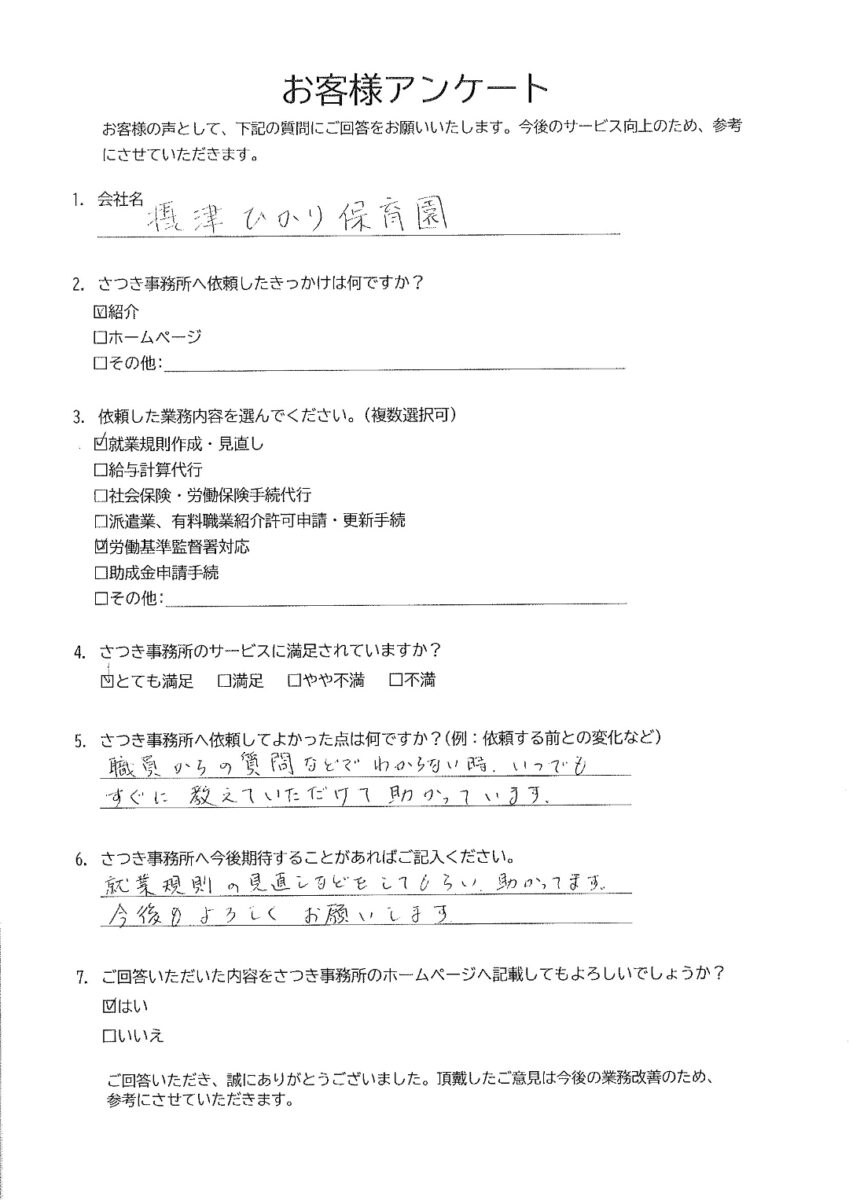 お客様アンケート
お客様の声として、下記の質問にご回答をお願いいたします。今後のサービス向上のため、参考
にさせていただきます。
1. 会社名 摂津ひかり保育園
2. さつき事務所へ依頼したきっかけは何ですか？
☑紹介
□ホームページ
□その他：
3. 依頼した業務内容を選んでください。（複数選択可）
☑就業規則作成・見直し
□給与計算代行
□社会保険・労働保険手続代行
□派遣業、有料職業紹介許可申請・更新手続
☑労働基準監督署対応
□助成金申請手続
□その他：
4. さつき事務所のサービスに満足されていますか？
☑とても満足 □満足 □やや不満 □不満
5. さつき事務所へ依頼してよかった点は何ですか？（例：依頼する前との変化など）
職員からの質問などでわからない時、いつでも
すぐに教えていただけて助かっています。
6. さつき事務所へ今後期待することがあればご記入ください。
就業規則の見直しなどをしてもらい、助かってます。
今後もよろしくお願いします
7. ご回答いただいた内容をさつき事務所のホームページへ記載してもよろしいでしょうか？
☑はい
□いいえ
ご回答いただき、誠にありがとうございました。頂戴したご意見は今後の業務改善のため、
参考にさせていただきます。